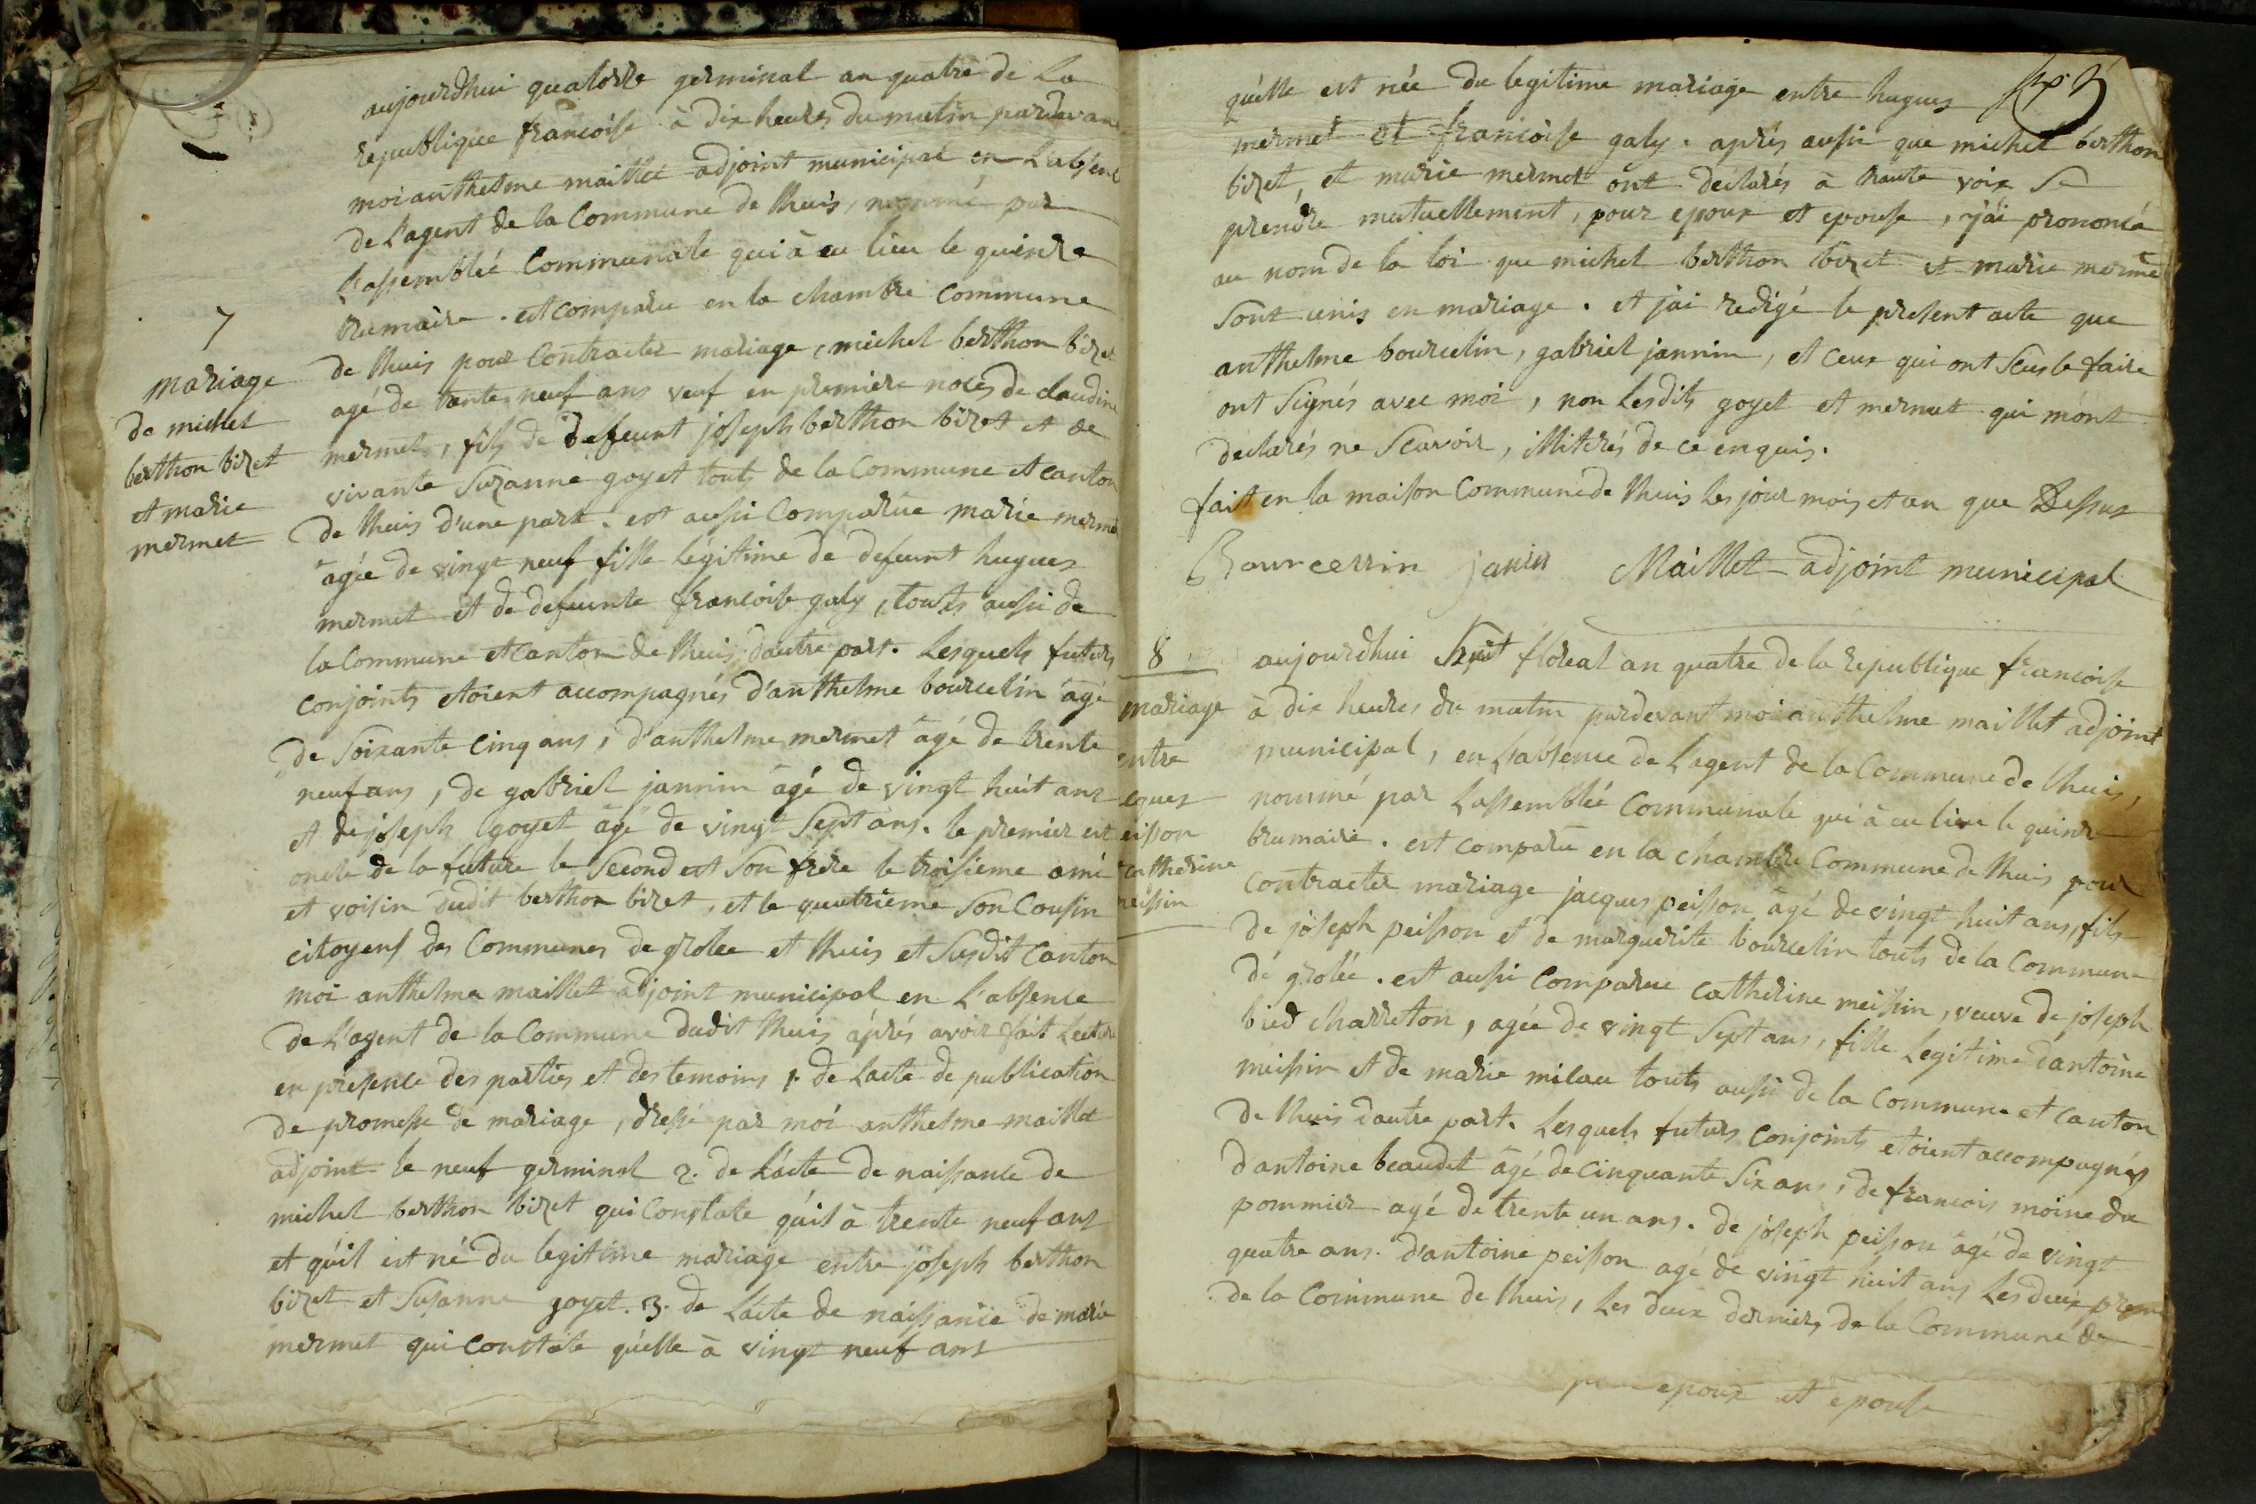 aujourdhui quatorze germinal an quatre de La
republique francoise à dix heures du matin pardevan
moi anthelme maillet adjoint municipal en L'absenc
de L'agent de la Commune de lhuis, nommé par
L'assemblée Communale qui à eu lieu le quinze
brumaire . est comparu en la chambre Commune
7
de lhuis pour Contracter mariage, michel berthon bizet
mariage
de michel
berthon bizet
et marie
mermet
agé de trente neuf ans veuf en premiere noces de claudine
mermet, fils de deffeunt joseph berthon bizet et de
vivante Suzanne goyet touts de la Commune et canton
de lhuis d'une part. est aussi Comparüe marie merme
agée de vingt neuf fille légitime de défeunt hugues
mermet et de defeunte francoise galy, touts aussi de
la Commune et canton de lhuis dautre part. Lesquels futurs
conjoints etoient accompagnés d'anthelme bourcelin agé
de Soixante cinq ans, d'anthelme mermet âgé de trente
neuf ans, de gabriel jannin âgé de vingt huit ans
et de joseph goyet âgé de vingt Sept ans. le premier est
oncle de la future le Second est Son frère le troisieme ami
et voisin dudit berthon bizet, et le quatrième Son Cousin
citoyens des Communes de grolee et lhuis et Susdit Canton
moi anthelme maillet adjoint municipal en L'absence
de L'agent de la Commune dudit lhuis après avoir fait Lectur
en presence des parties et des temoins 1. de Lacte de publication
de promesse de mariage, dressé par moi anthelme maillet
adjoint le neuf germinal 2. de L'acte de naissance de
michel berthon bizet qui Constate qu'il à trente neuf ans
et qu'il est né du legitime mariage entre joseph berthon
bizet et Susanne goyet. 3. de L'acte de naissance de marie
mermet qui constate qu'elle à vingt neuf ans
qu'elle est née du legitime mariage entre hugues
mermet et francoise galy . après aussi que michel berthon
bizet, et marie mermet ont declarés à haute voix Se
prendre mutuellement, pour epoux et epouse, j'ai prononcé
au nom de la loi que michel berthon bizet et marie merme
Sont unis en mariage . et j'ai redigé le present acte que
anthelme bourcelin, gabriel jannin, et ceux qui ont Sceus le faire
ont Signés avec moi, non Lesdits goyet et mermet qui m'ont
declarés ne Scavoir, illitérés de ce enquis.
fait en la maison Commune de lhuis les jour mois et an que Dessus
Bourcerrin janin Maillet adjoint municipal
8
mariage
entre
cques
eisson
catherine
meissin
aujourdhui huit floreal an quatre de la republique francoise
à dix heures du matin pardevant moi anthelme maillet adjoint
municipal, en L'absence de L'agent de la Commune de lhuis,
nommé par L'assemblée Communale qui à eu lieu le quinze
brumaire . est comparu en la chambre Commune de lhuis pour
Contracter mariage jacques peisson âgé de vingt huit ans, fils
de joseph peisson et de marguerite bourcelin touts de la Commune
de grolée . est aussi Comparue catherine meissin, veuve de joseph
bied charreton, agée de vingt Sept ans, fille Legitime d'antoine
meissin et de marie milau touts aussi de la Commune et canton
de lhuis dautre part. Lesquels futurs conjoints etoient accompagnés
d'antoine beaudet âgé de cinquante Six ans, de francois moine du
pommier agé de trente un ans. de joseph peisson âgé de vingt
quatre ans. d'antoine peisson agé de vingt huit ans Les deux prem
de la Commune de lhuis, Les deux derniers de la Commune de
epoux et epouse